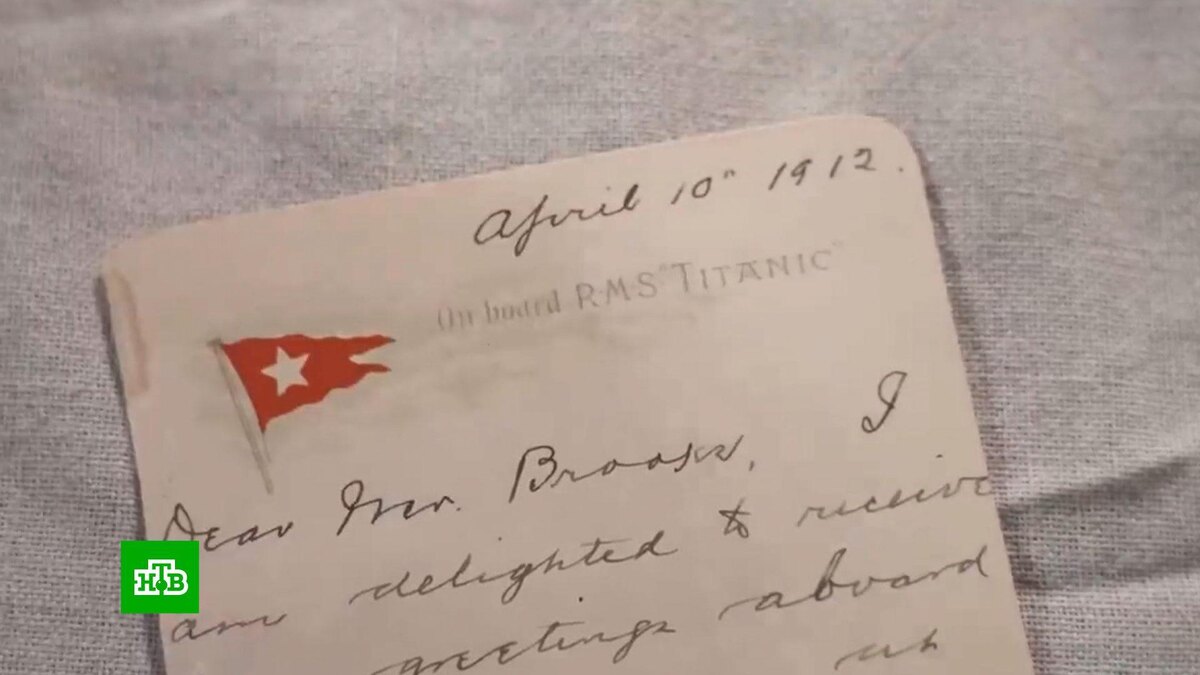 April 10" 1912.
On board R·M·S "TITANIC"
Dear Mr. Brooks, I
am delighted to receive
greetings aboard
us
НТВ